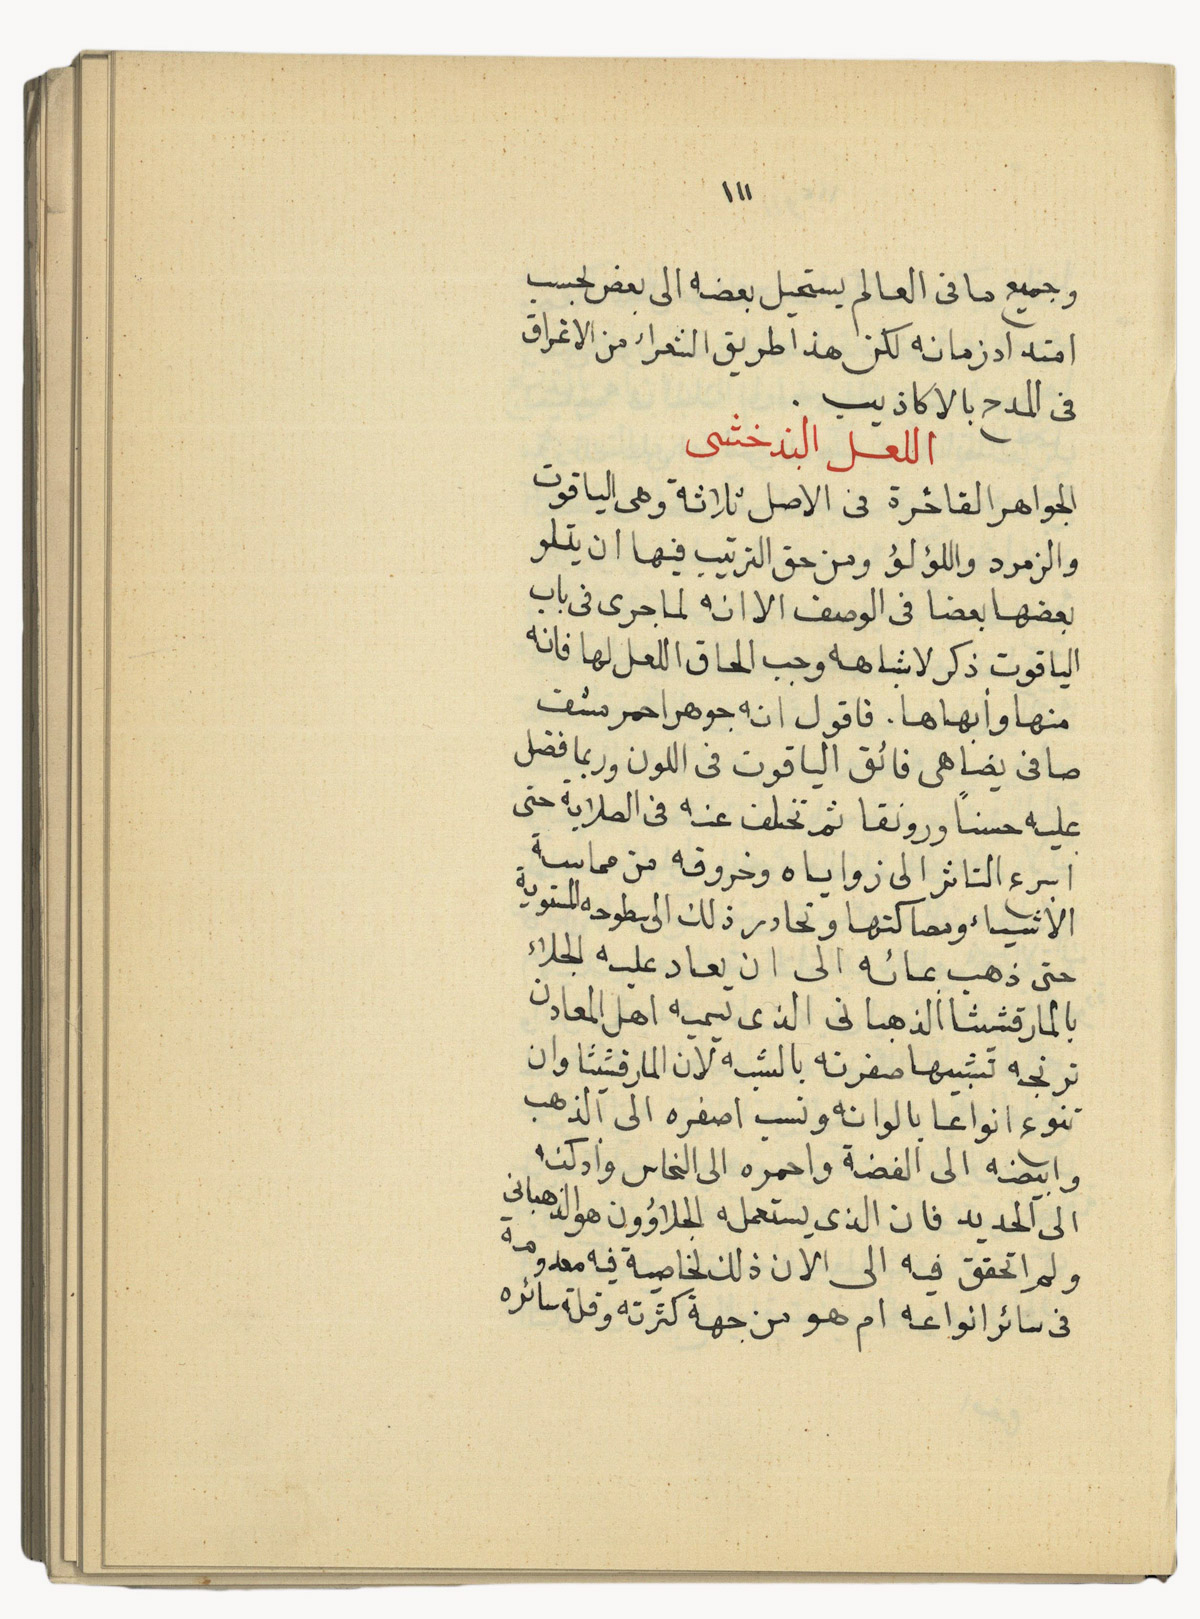 ١١١
وجميع ما فى العالم يستحيل بعضه الى بعض بحسب
امتداد زمانه لكن هذا طريق الشعراء من الاغراق
فى المدح بالاكاذيب .
اللعل البدخشى
الجواهر الفاخرة فى الاصل ثلاثة وهى الياقوت
والزمرد واللؤلؤ ومن حق الترتيب فيها ان يتلو
بعضها بعضا فى الوصف الا انه لما جرى فى باب
الياقوت ذكر لاشباهه وجب الحاق اللعل لها فانه
منها وأبهاها . فاقول انه جوهر احمر مشف
صافى يضاهى فائق الياقوت فى اللون وربما فضل
عليه حسناً ورونقا ثم تخلف عنه فى الصلابة حتى
اسرع التاثر الى زواياه وخروقه من مماسة
الاشياء ومصاكتها وتحادر ذلك الى سطوحه المستوية
حتى ذهب بمائه الى ان يعاد عليه الجلاء
بالمارقشيشا الذهبانى الذى يسميه اهل المعادن
ترنجه تشبيها صفرته بالشبه لان المارقشيشا وان
تنوع انواعا بالوانه ونسب اصفره الى الذهب
وابيضه الى الفضة واحمره الى النحاس وأدكنه
الى الحديد فان الذى يستعمله الجلاؤون هو الذهبانى
ولم اتحقق فيه الى الان ذلك لخاصية فيه معدومة
فى سائر انواعه ام هو من جهة كثرته وقلة سائره